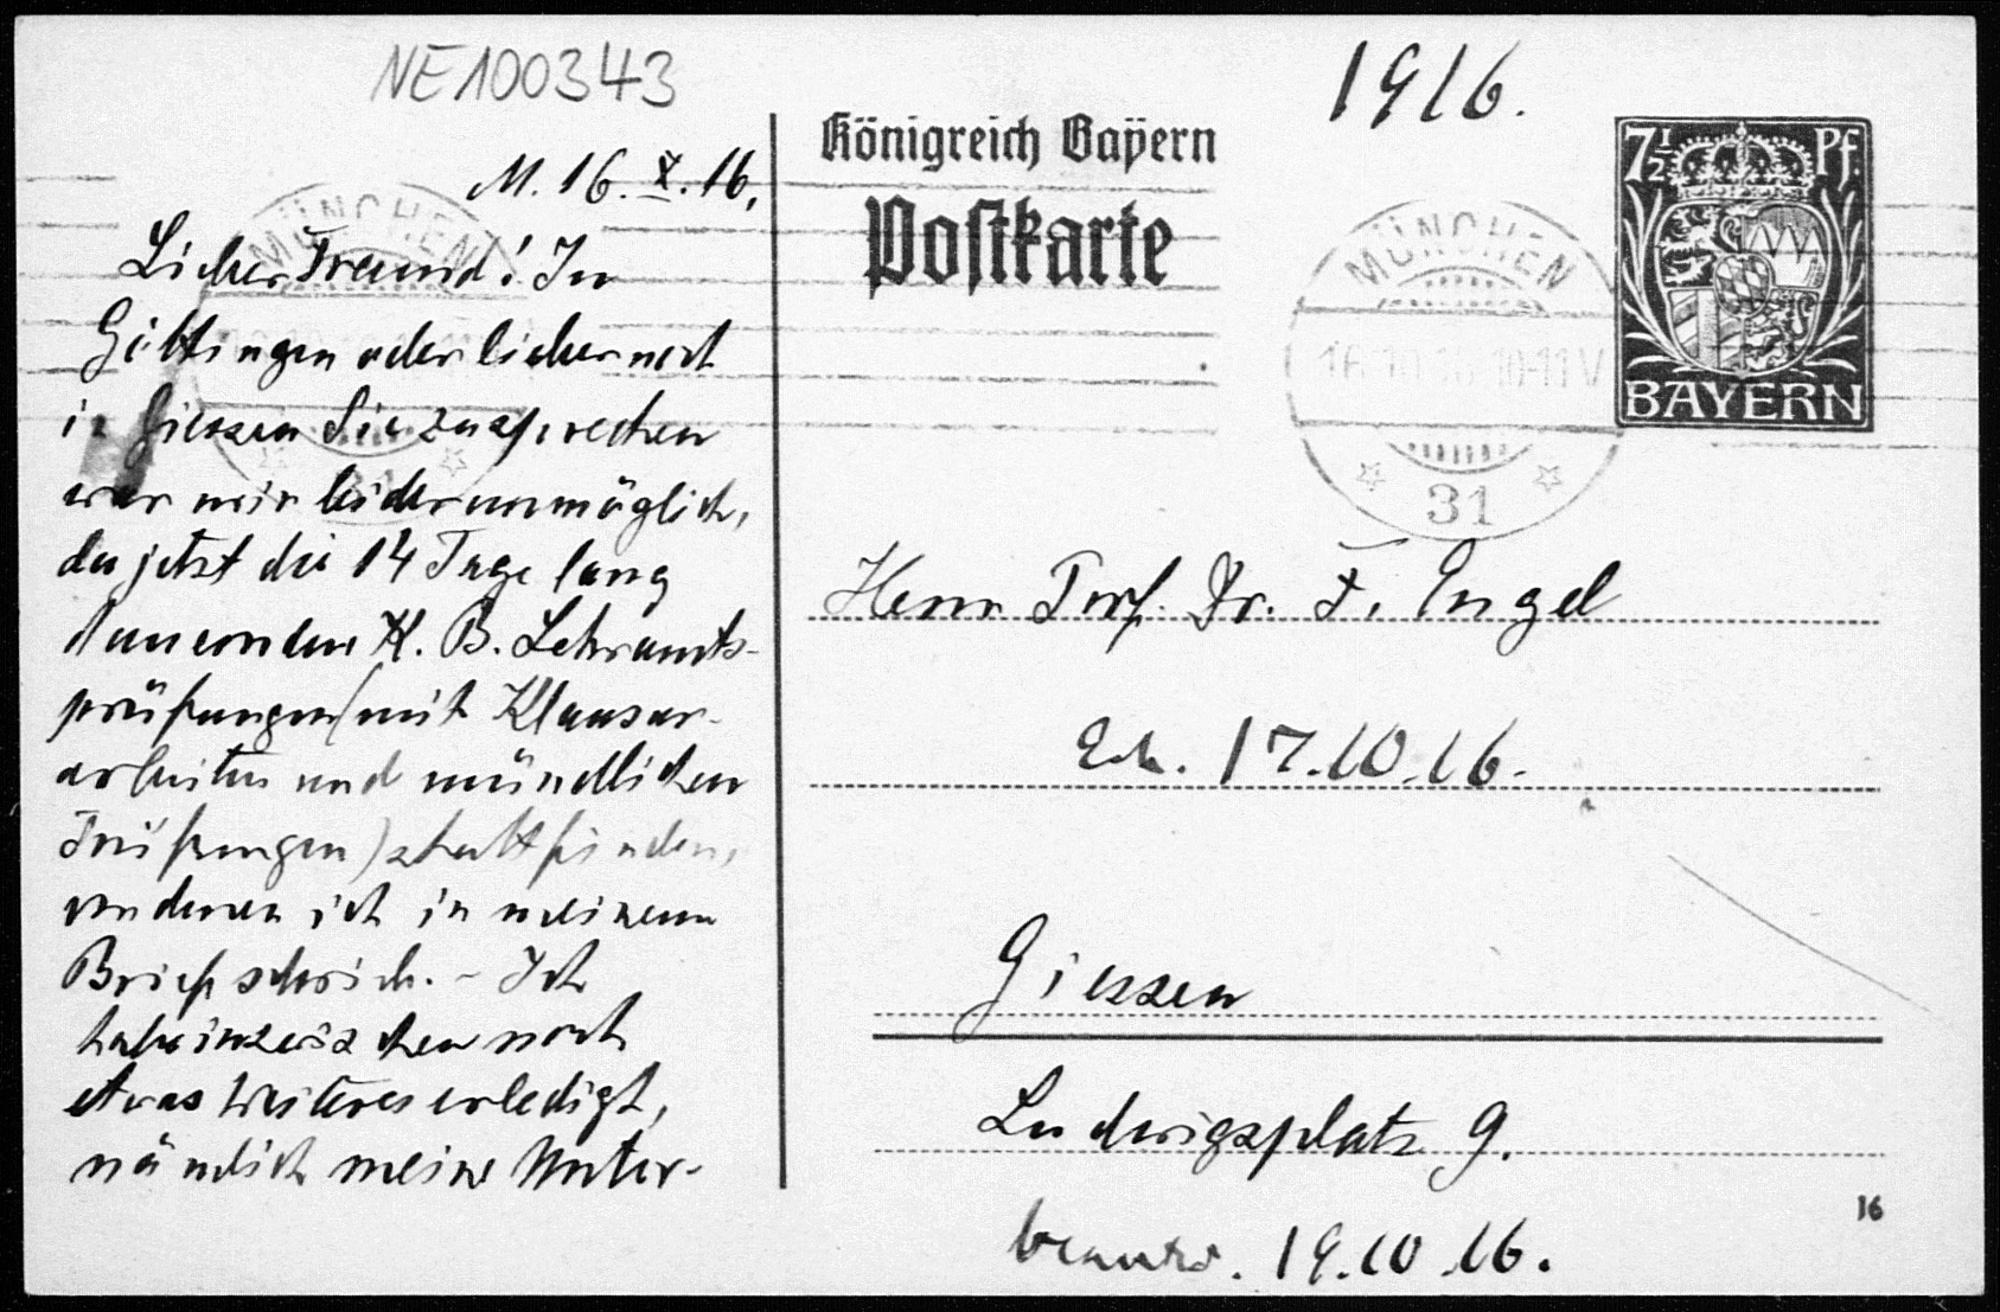 NE100343
1916.
M. 16. X. 16.
Lieber Freund! In
Göttingen oder lieber noch
in Giessen Sie zu sprechen
war mir leider unmöglich,
da jetzt die 14 Tage lang
dauernden K. B. Lehramts-
prüfungen (mit Klausur-
arbeiten und mündlichen
Prüfungen) stattfinden,
von denen ich in meinem
Brief schrieb. - Ich
habe inzwischen noch
etwas Weiteres erledigt,
nämlich meine Unter-
Königreich Bayern
Postkarte
7½ Pf.
BAYERN
MÜNCHEN
16.10.16 10-11V
31
MÜNCHEN
31
Herrn Prof. Dr. F. Engel
Erh. 17.10.16.
Giessen
Ludwigsplatz 9.
16
beantw. 19.10.16.